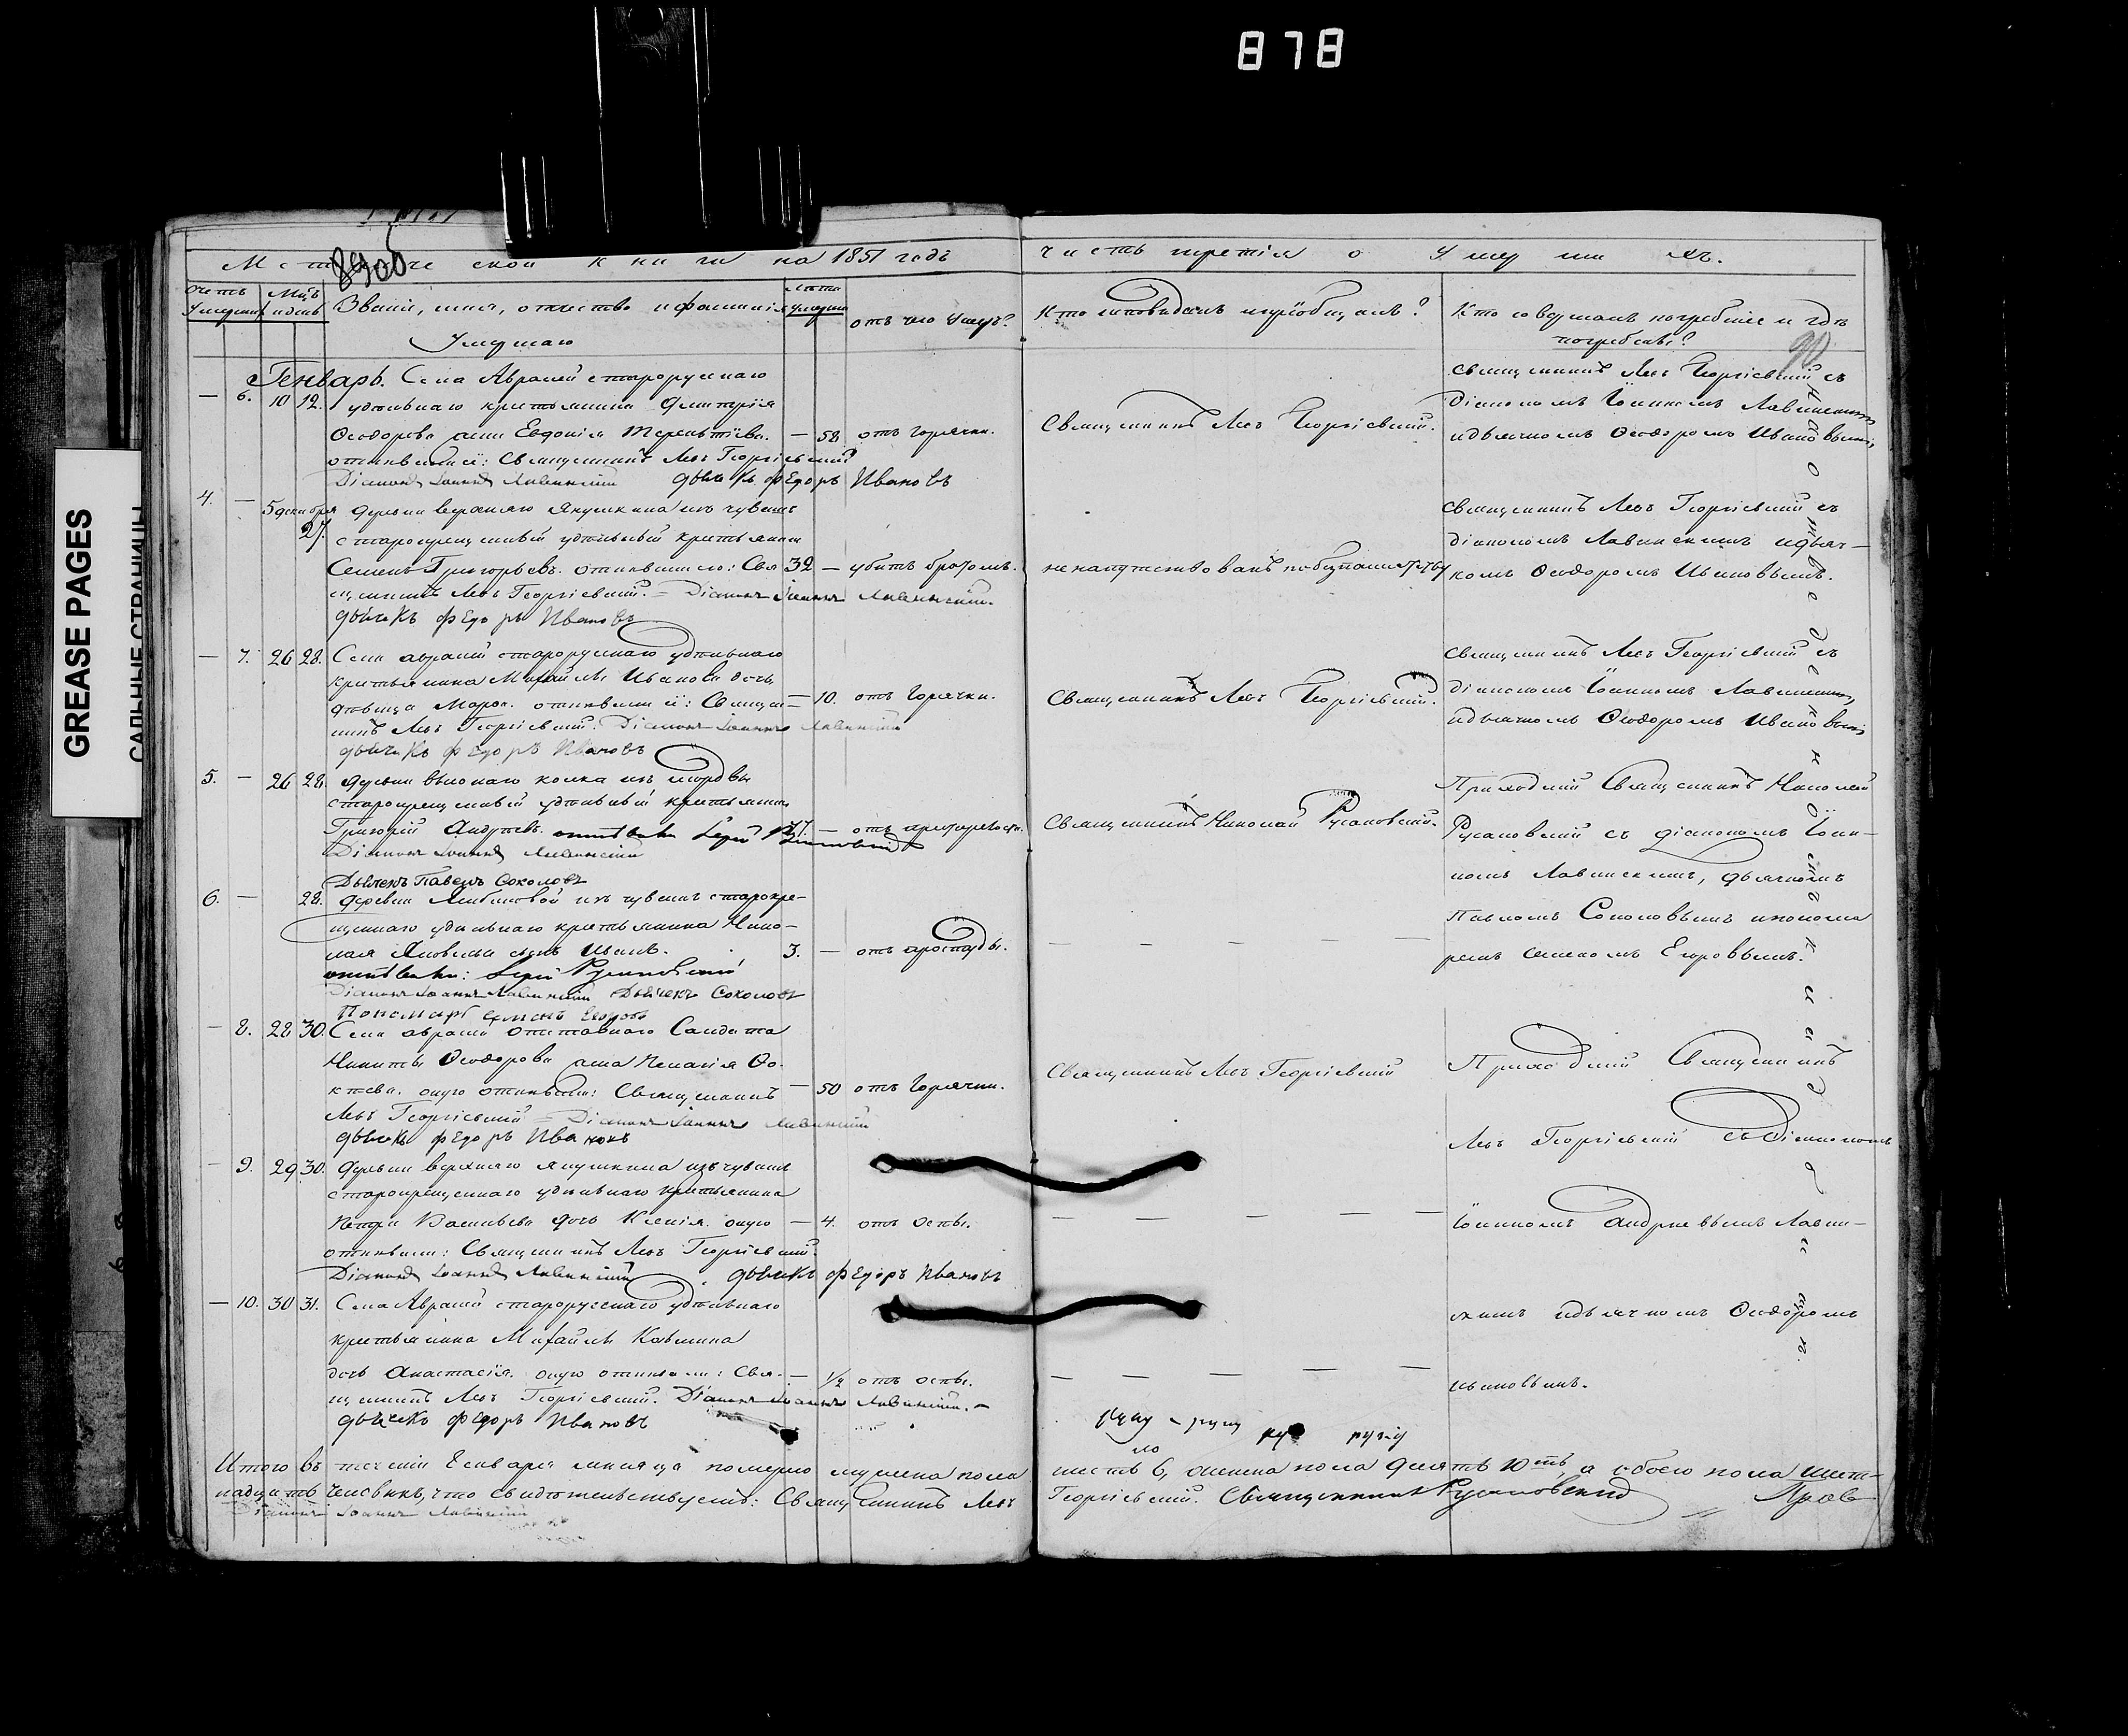 878
GREASE PAGES
САЛЬНЫЕ СТРАНИЦЫ
8900
Метрической книги на 1851 годъ
часть третія о Умершихъ.
Счетъ Умершихъ
Мѣс. и день
Званіе, имя, отчество и фамилія
Умершаго
Лѣта Умерша
отъ чего Умеръ?
Кто исповѣдалъ и пріобщалъ?
Кто совершалъ погребеніе и гдѣ
погребены?
90
Генварь. Села Аврамей старорусскаго
— 6. 10 12. удѣльнаго крестьянина Дмитрія
Ѳеодорова жена Евдокія Терентіева. — 58 отъ горячки.
отпѣвали: Священникъ Левъ Георгіевскій
Діаконъ Іоаннъ Лавинскій дьячекъ Федоръ Ивановъ
Священникъ Левъ Георгіевскій.
Священникъ Левъ Георгіевскій съ
діакономъ Іоанномъ Лавинскимъ
и дьячкомъ Ѳеодоромъ Ивановымъ,
4. — 5 декабря деревни верхняго Якушкина изъ чувашъ
27. старокрещеный удѣльный крестьянинъ
Семенъ Григорьевъ. отпѣвали его: Свя 32 — убитъ братомъ.
щенникъ Левъ Георгіевскій. – Діаконъ Іоаннъ Лавинскій.
дьячекъ Федоръ Ивановъ
Священникъ Левъ Георгіевскій съ
діакономъ Лавинскимъ и дьяч-
комъ Ѳеодоромъ Ивановымъ.
— 7. 26 28. Села Аврамей старорусскаго удѣльнаго
крестьянина Михайлы Иванова дочь
дѣвица Марѳа. отпѣвали ѣ: Священ — 10. отъ горячки.
никъ Левъ Георгіевскій. Діаконъ Іоаннъ Лавинскій
дьячекъ Федоръ Ивановъ
Священникъ Левъ Георгіевскій.
Священникъ Левъ Георгіевскій съ
діакономъ Іоанномъ Лавинскимъ,
и дьячкомъ Ѳеодоромъ Ивановымъ
5. — 26 28. деревни вьюнаго колка изъ мордвы
старокрещеный удѣльный крестьянинъ
Григорій Андреевъ.
Діаконъ Іоаннъ Лавинскій
Дьячекъ Павелъ Соколовъ
Священникъ Николай Русановскій.
Приходскій Священникъ Николай
Русановскій съ діакономъ Іоан-
номъ Лавинскимъ, дьячкомъ
Павломъ Соколовымъ и понома
ремъ Семеномъ Егоровымъ.
6. — 28. деревни изъ чувашъ старокре-
щеннаго удѣльнаго крестьянина Нико-
лая Яковлева сынъ Иванъ. 3. — отъ простуды.
Діаконъ Іоаннъ Лавинскій Дьячекъ Соколовъ
Пономарь Семенъ Егоровъ
— 8. 28 30. Села Аврамей отставнаго Солдата
Никиты Ѳеодорова жена Пелагія Ѳо-
ктева. оную отпѣвали: Священникъ — 50 отъ горячки.
Левъ Георгіевскій – Діаконъ Іоаннъ Лавинскій
дьячекъ Федоръ Ивановъ
Священникъ Левъ Георгіевскій
Приходскій Священникъ
Левъ Георгіевскій съ Діакономъ
— 9. 29. 30. деревни верхняго Якушкина изъ чувашъ
старокрещеннаго удѣльнаго крестьянина
Петра Васильева дочь Ксенія. оную — 4. отъ оспы.
отпѣвали: Священникъ Левъ Георгіевскій.
Діаконъ Іоаннъ Лавинскій. дьячекъ Федоръ Ивановъ
Іоанномъ Андреевымъ Лавин-
— 10. 30 31. Села Аврамей старорусскаго удѣльнаго
крестьянина Михайлы Козмина
дочь Анастасія. оную отпѣвали: Свя- — 1/2 отъ оспы.
щенникъ Левъ Георгіевскій. Діаконъ Іоаннъ Лавинскій. –
дьячекъ Федоръ Ивановъ
скимъ и дьячкомъ Ѳеодоромъ
Ивановымъ.
Итого въ теченіи Генваря мѣсяца померло мужеска пола шесть 6, женска пола десять 10ть, а обоего пола шест-
надцать человѣкъ, что свидѣтельствуемъ: Священникъ Левъ Георгіевскій. Священникъ Русановскій
Діаконъ Іоаннъ Лавинскій